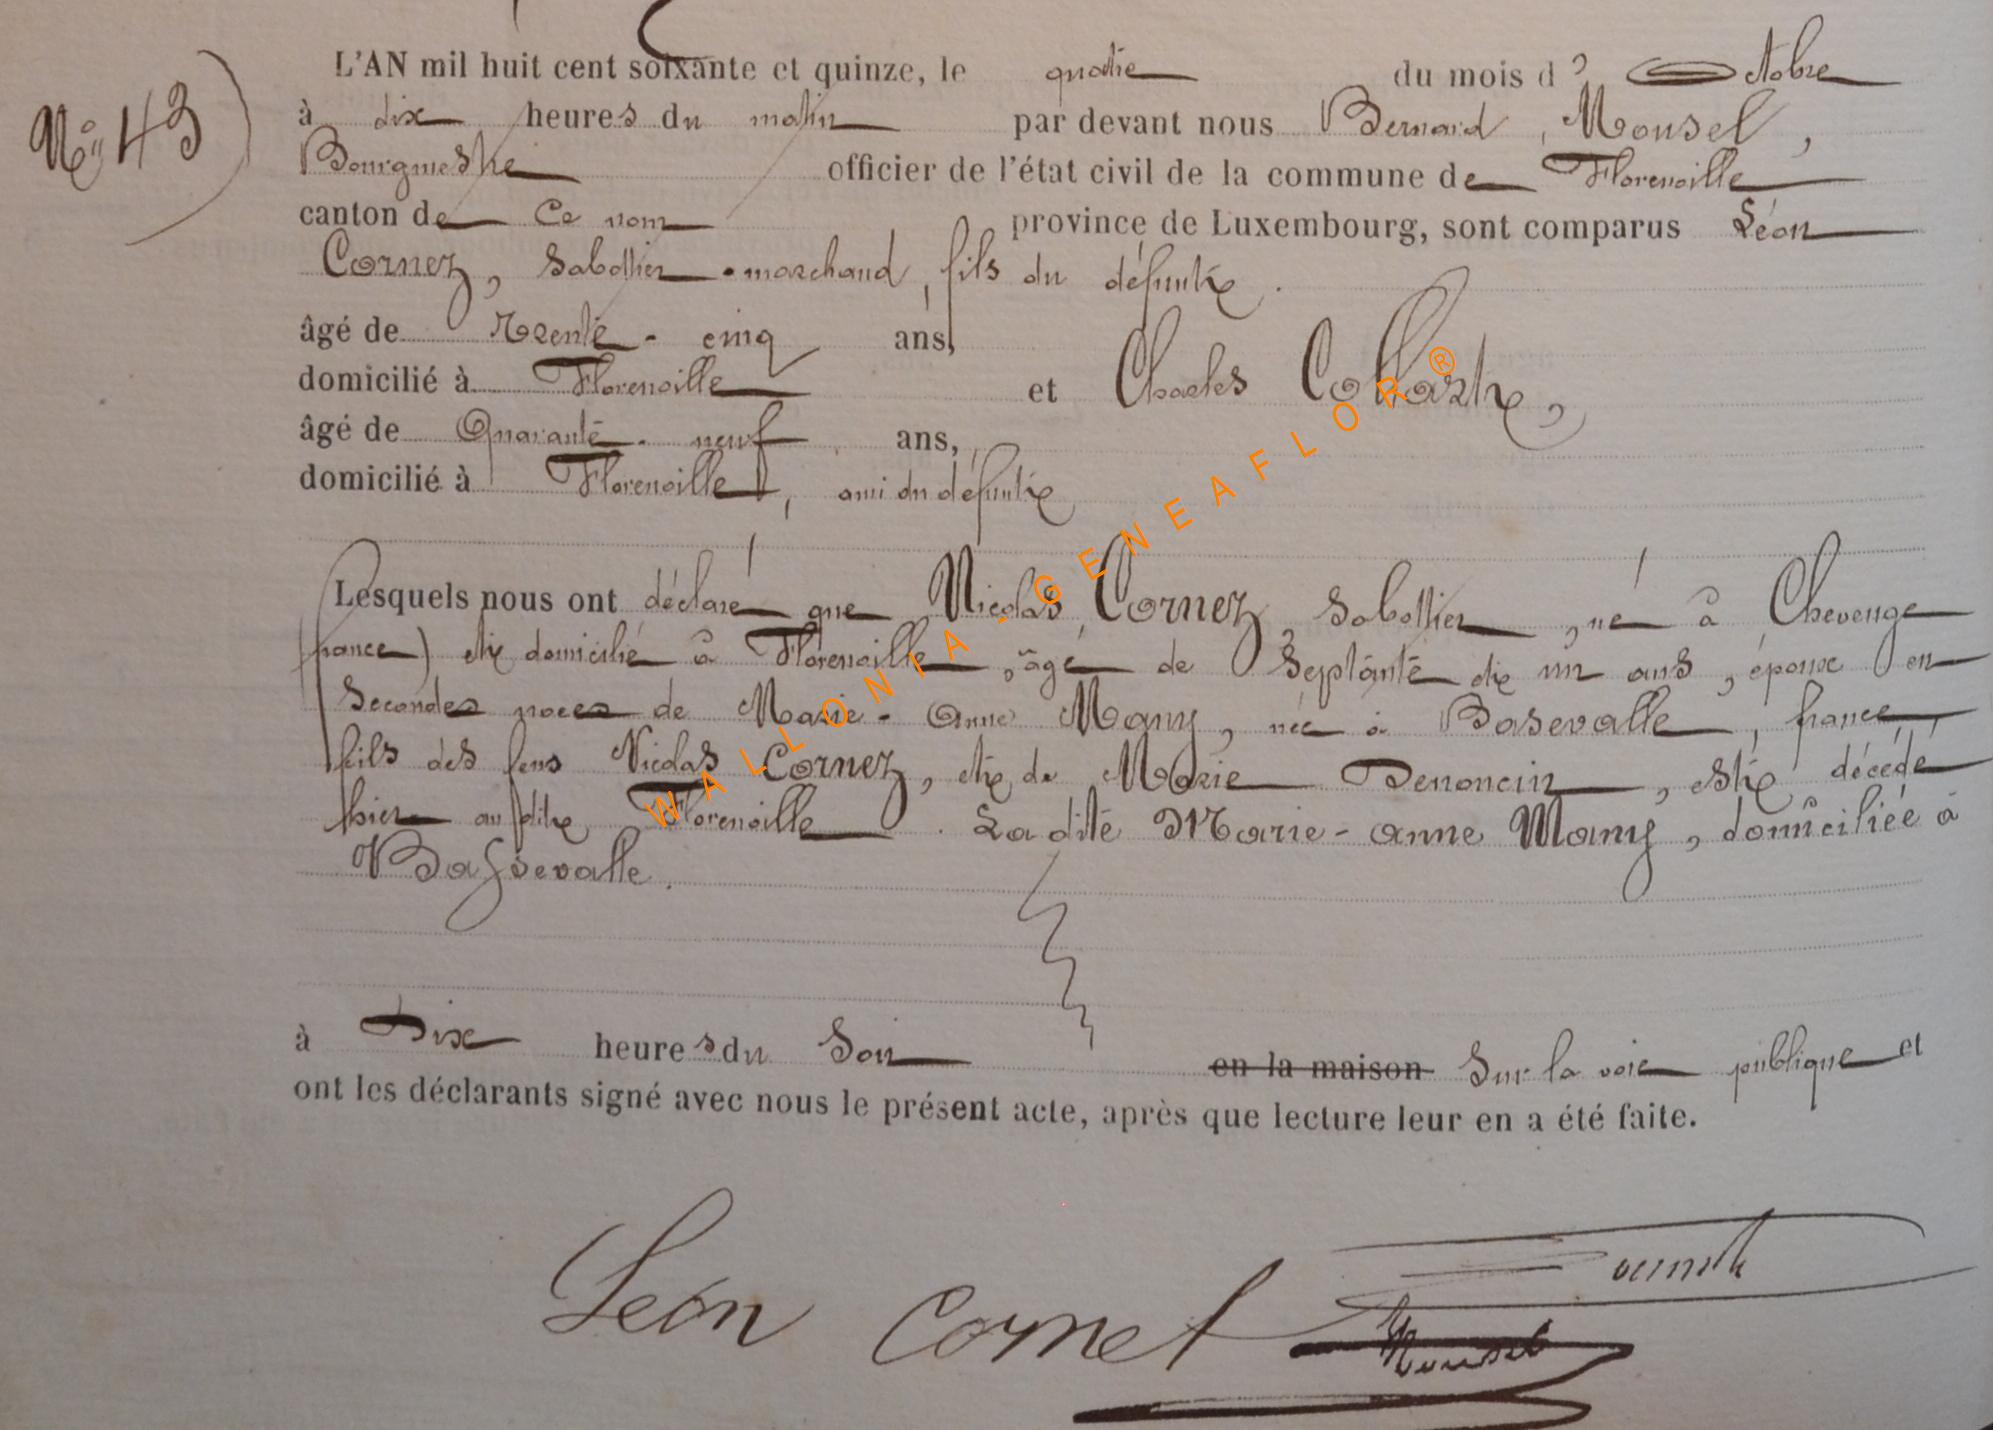 L'AN mil huit cent soixante et quinze, le quatre du mois d' Octobre
N° 43) à dix heures du matin par devant nous Bernard Mousel,
Bourgmestre officier de l'état civil de la commune de Florenville
canton de Ce nom province de Luxembourg, sont comparus Léon
Cornez, Sabottier - marchand, fils du défunt.
âgé de Trente - cinq ans,
domicilié à Florenville et Charles Collart,
âgé de Quarante - neuf ans,
domicilié à Florenville, ami du défunt
Lesquels nous ont déclaré que Nicolas Cornez, Sabottier, né à Chevenge
france) et domicilié à Florenville, âgé de Septante dix un ans, époux en
Secondes noces de Marie - Anne Many, née à Basevalle, france,
fils des feus Nicolas Cornez, et de Marie Denoncin, est décédé
hier au dit Florenville. La dite Marie - anne Many, domiciliée à
Bassevalle.
à Dix heures du Soir en la maison Sur la voie publique et
ont les déclarants signé avec nous le présent acte, après que lecture leur en a été faite.
Léon Cornet
Mousel
WALLONIA - GENEAFLOR ®